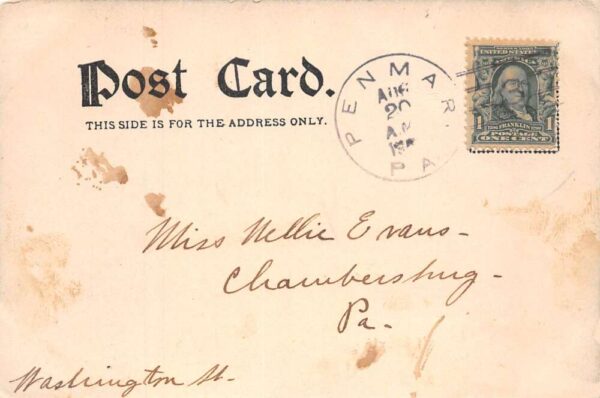 Post Card.
THIS SIDE IS FOR THE ADDRESS ONLY.
PENMAR
AUG
20
PA
UNITED STATES
1 FRANKLIN 1
POSTAGE
ONE CENT
Miss Nellie Evans-
Chambersburg-
Pa-
Washington St.